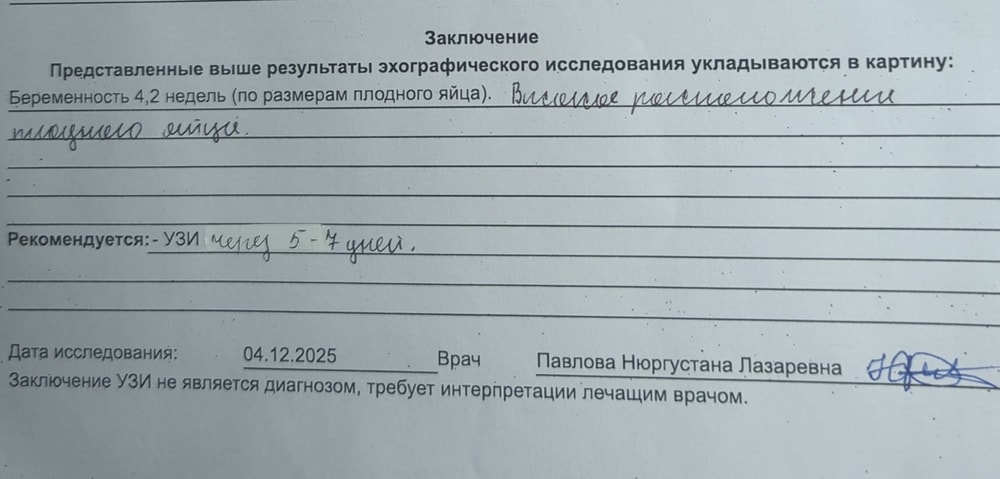 Заключение
Представленные выше результаты эхографического исследования укладываются в картину:
Беременность 4,2 недель (по размерам плодного яйца). Высокое расположение
плодного яйца.
Рекомендуется: - УЗИ через 5 - 7 дней.
Дата исследования: 04.12.2025 Врач Павлова Нюргустана Лазаревна
Заключение УЗИ не является диагнозом, требует интерпретации лечащим врачом.